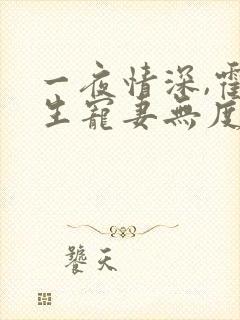 一夜情深,霍
生寵妻無度
饕天